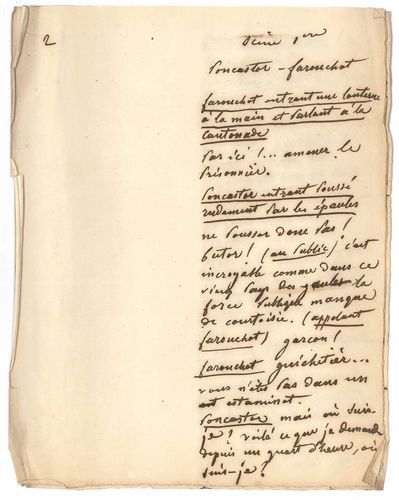 2
Scène 1ère
Poncastor - farouchot
farouchot entrant une lanterne
à la main et parlant à la
cantonade
Par ici !... amener le
prisonnier.
Poncastor entrant poussé
rudement par les épaules
ne pousser donc pas !
butor ! (au public) c'est
incroyable comme dans ce
vieux pays des gaules la
force publique manque
de courtoisie. (appelant
farouchot) garçon !
farouchot guichetier...
vous n'êtes pas dans un
estaminet.
Poncastor mais où suis-
je ! voilà ce que je demande
depuis un quart d'heure, où
suis-je ?